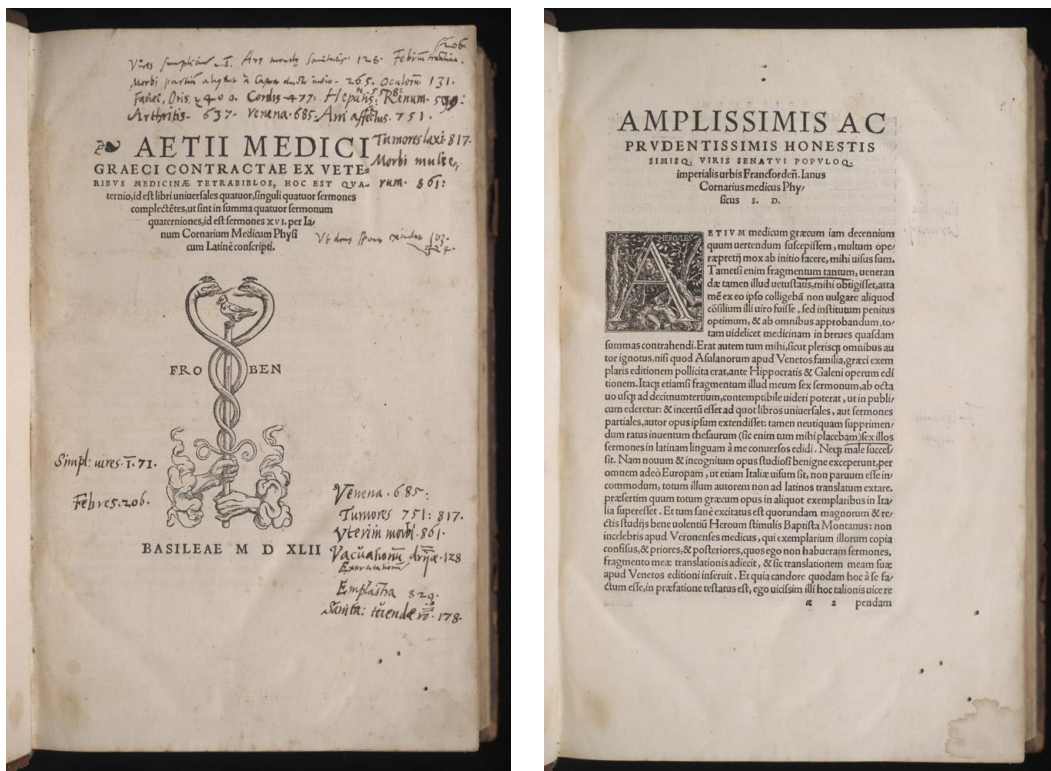 206
Vires simplicium 1. Ars tuendę sanitatis 128. Febrium
Morbi partium a Capite 265. Oculorum 131.
Faciei, Oris. 400. Cordis 477: Hepatis. Renum.
Arthritis. 637. venena. 685. Ani affectus. 751.
Tumores laxi. 817.
Morbi mulie,
rum. 861:
AETII MEDICI
GRAECI CONTRACTAE EX VETE=
RIBVS MEDICINÆ TETRABIBLOS, HOC EST QVA-
ternio, id est libri uniuersales quatuor, singuli quatuor sermones
complectẽtes, ut sint in summa quatuor sermonum
quaterniones, id est sermones XVI. per Ia/
num Cornarium Medicum Physi
cum Latinè conscripti.
FRO BEN
Simpl: uires. 1. 71.
Febres. 206.
BASILEAE M D XLII
Venena. 685:
Tumores 751: 817.
Vterini morbi. 861.
128
Emplastra 829.
Sanita: tuendæ 178.
AMPLISSIMIS AC
PRVDENTISSIMIS HONESTIS
SIMISQ; VIRIS SENATVI POPVLOQ;
imperialis urbis Francforden̄. Ianus
Cornarius medicus Phy/
sicus S. D.
HERCVLES
AETIVM medicum græcum iam decennium
quum uertendum suscepissem, multum ope/
ræpretij mox ab initio facere, mihi uisus sum.
Tametsi enim fragmentum tantum, ueneran
dæ tamen illud uetustatis, mihi obtigisset, atta
mẽ ex eo ipso colligebã non uulgare aliquod
cõsilium illi uiro fuisse, sed institutum penitus
optimum, & ab omnibus approbandum, to/
tam uidelicet medicinam in breues quasdam
summas contrahendi. Erat autem tum mihi, sicut pleriscq; omnibus au
tor ignotus, nisi quod Asulanorum apud Venetos familia, græci exem
plaris editionem pollicita erat, ante Hippocratis & Galeni operum edi
tionem. Itaq; etiamsi fragmentum illud meum sex sermonum, ab octa
uo usq; ad decimumtertium, contemptibile uideri poterat, ut in publi/
cum ederetur: & incertũ esset ad quot libros uniuersales, aut sermones
partiales, autor opus ipsum extendisset: tamen neutiquam supprimen/
dum ratus inuentum thesaurum (sic enim tum mihi placebam) sex illos
sermones in latinam linguam à me conuersos edidi. Necq; male succes/
sit. Nam nouum & incognitum opus studiosi benigne exceperunt, per
omnem adeò Europam, ut etiam Italiæ uisum sit, non paruum esse in/
commodum, totum illum autorem non ad latinos translatum extare,
præsertim quum totum græcum opus in aliquot exemplaribus in Ita/
lia superesset. Et tum sanè excitatus est quorundam magnorum & re/
ctis studijs bene uolentiũ Heroum stimulis Baptista Montanus: non
incelebris apud Veronenses medicus, qui exemplarium illorum copia
confisus, & priores, & posteriores, quos ego non habueram sermones,
fragmento meæ translationis adiecit, & sic translationem meam suæ
apud Venetos editioni inseruit. Et quia candore quodam hoc à se fa/
ctum esse, in præfatione testatus est, ego uicissim illi hoc talionis uice re
æ 2 pendam